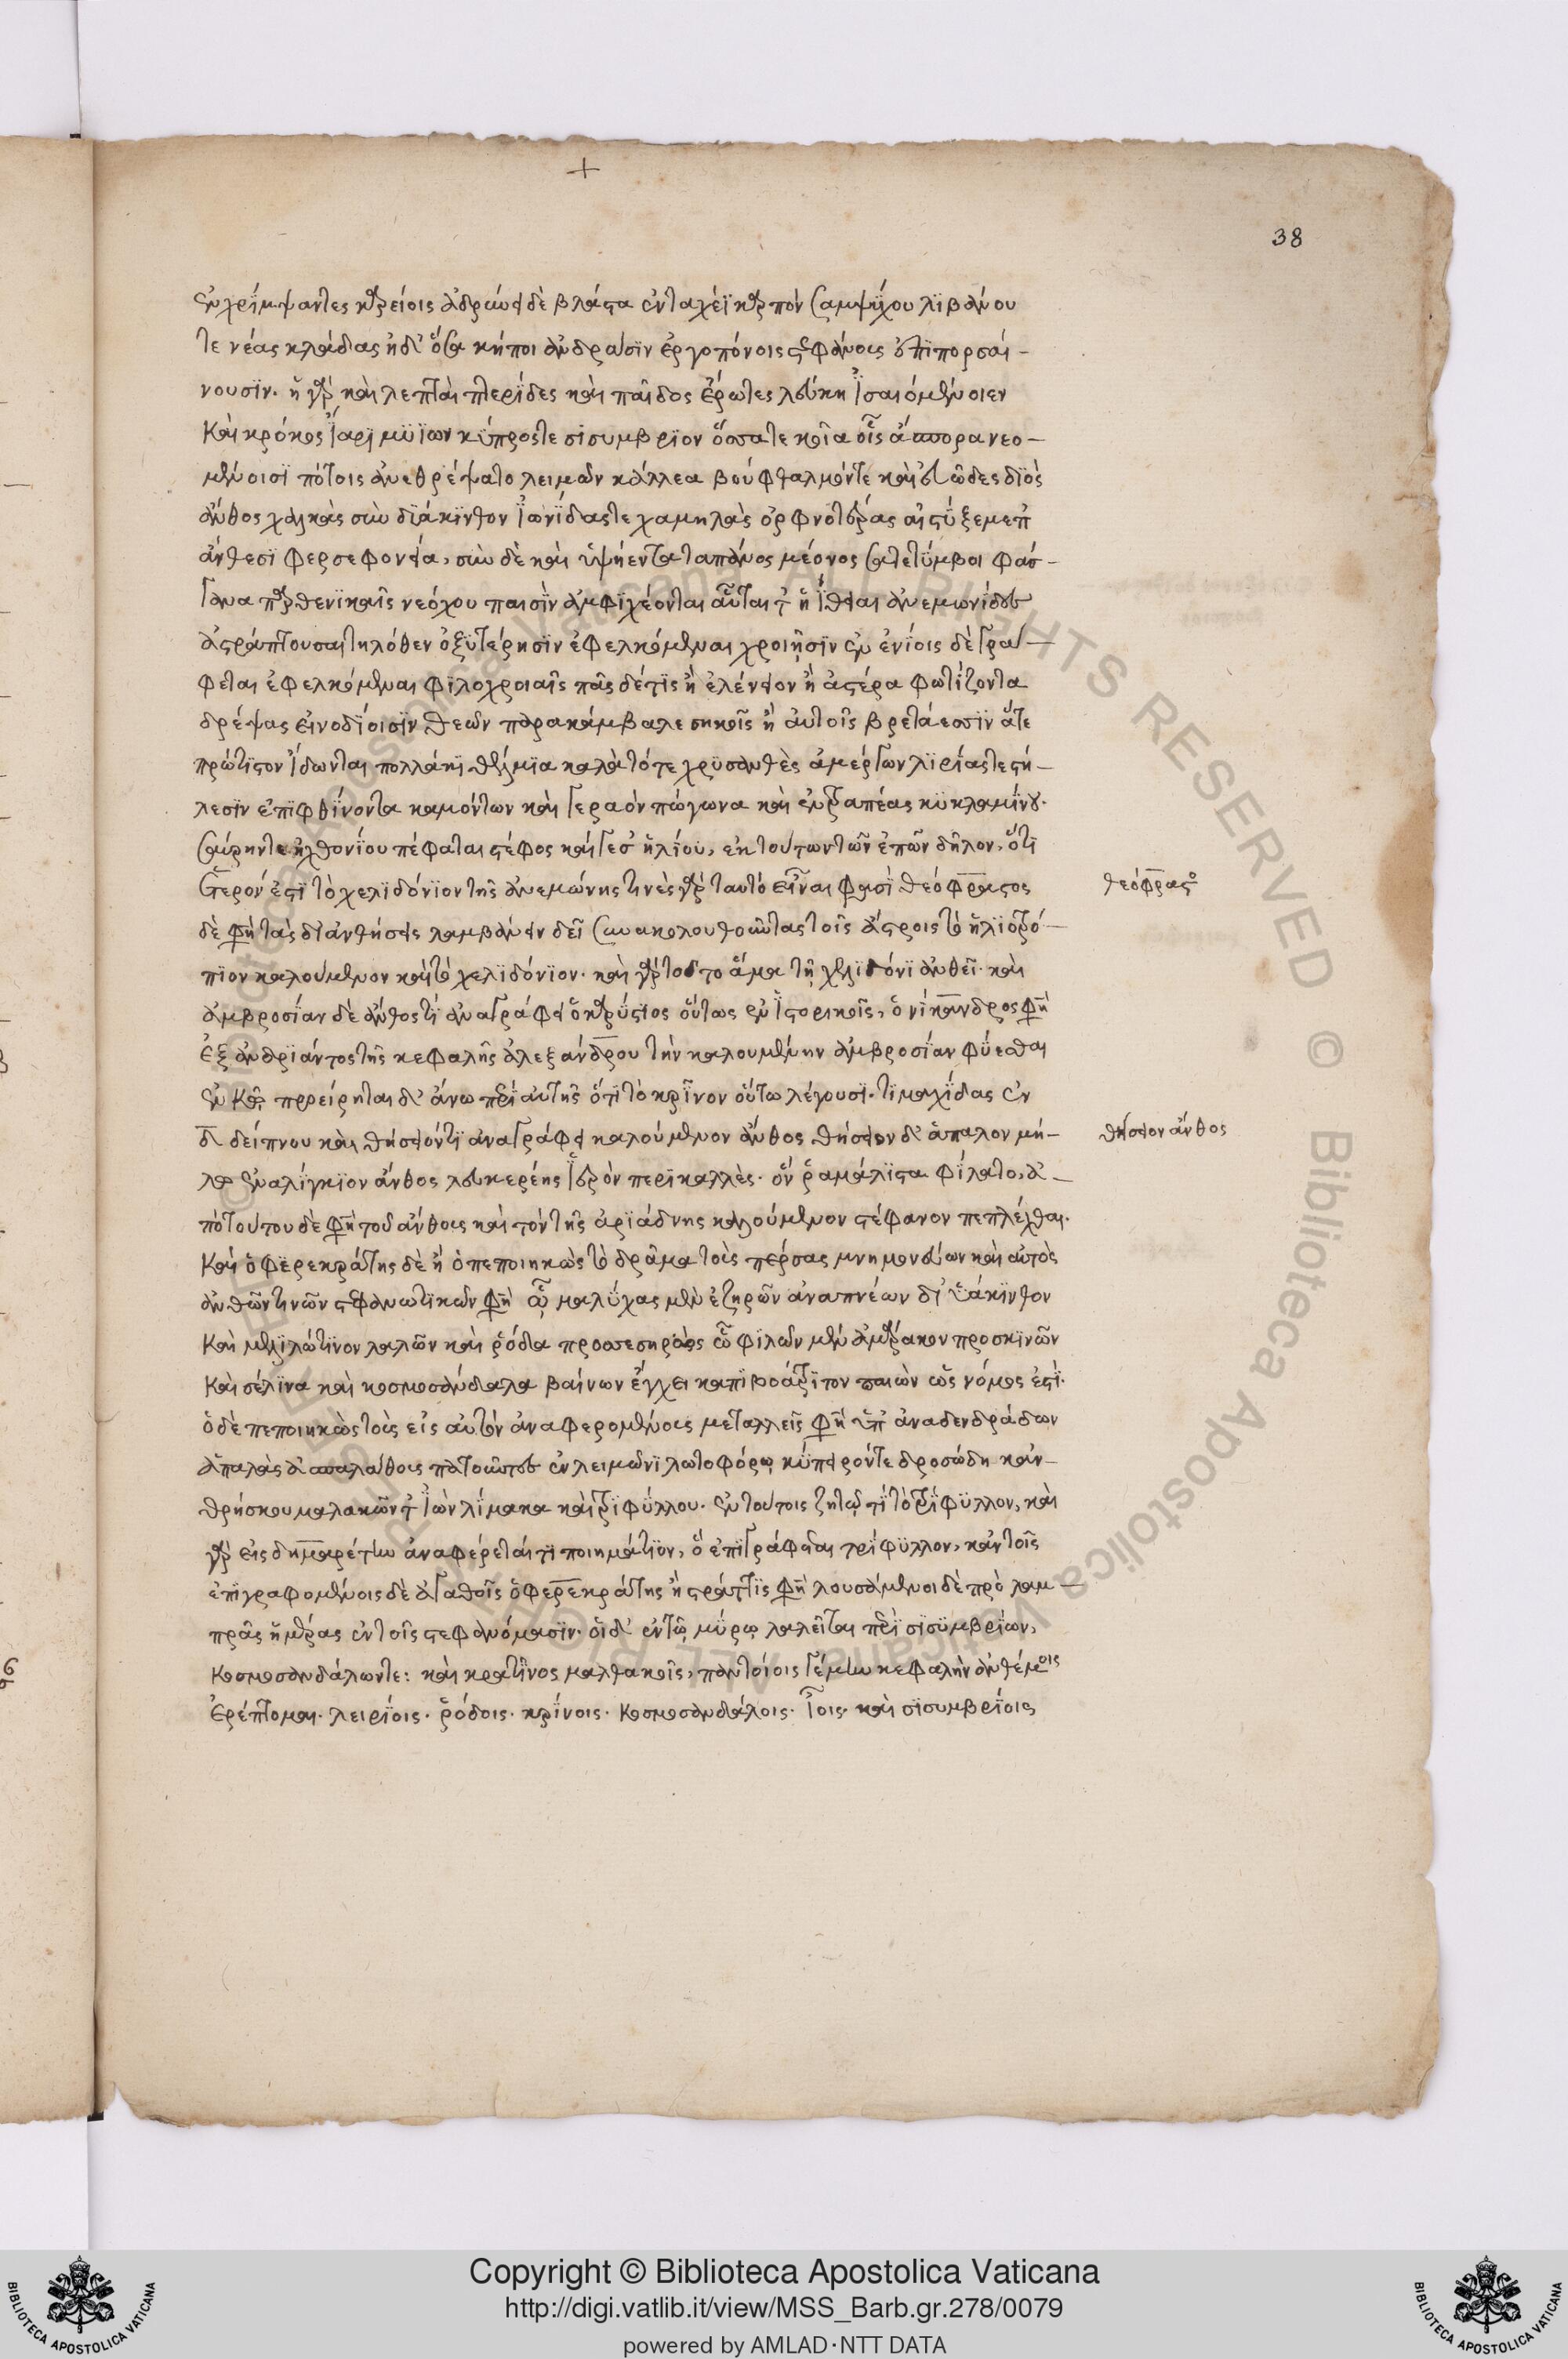 38
ἐνχρίμψαντες κηρείοις ἁδρύνει δὲ βλάστα ἐν ταχέϊ καρπὸν σαμψύχου λιβάνου
τε νέας κλάδας ἠδ' ὅσα κῆποι ἀνδράσιν ἐργοπόνοις στεφάνους ἐπιπορσαί-
νουσιν. ἦ γὰρ καὶ λεπταὶ πτερίδες καὶ παιδὸς ἔρωτες λεύκῃ ἰσαιόμενοιεν
καὶ κρόκος ἴαρι μύιων κύπρος τε σισύμβριον ὅσσα τε κοῖα οἷς ἄσπορα νεο-
μένοισι πότοις ἀνεθρέψατο λειμὼν κάλλεα βούφταλμόν τε καὶ εὐῶδες διὸς
ἄνθος χάλκας σὺν διάκινθον ἰωνίδας τε χαμηλὰς ὀρφνοτέρας αἳ στύξε μετ'
ἄνθεσι φερσεφόνεια, σὺν δὲ καὶ ὑψήεντα τάπανος μέσνος σατετύμβοι φάσ-
γανα παρθενικαῖς νεόχου παισὶν ἀμφιχέονται αὗται τ' ἠΐθεαι ἀνεμωνίδες
ἀστράπτουσαι τηλόθεν ὀξυτέρησιν ἐφελκόμεναι χροιῇσιν ἐν ἐνίοις δὲ γρά-
φεται ἐφελκόμεναι φιλοχροιαῖς πᾶς δέ τις ἢ ἐλένειον ἢ ἀστέρα φωτίζοντα
δρέψας εἰνοδίοισιν θεῶν παρακάμβαλε σηκοῖς ἢ αὐτοῖς βρετάεσσιν ἅτε
πρώτιστον ἴδωνται πολλάκι θέλιμια καλὰ τότε χρυσανθὲς ἀμέργων λίριά στε στή-
λεσιν ἐπιφθίνοντα καμόντων καὶ γεραὸν πώγωνα καὶ ἐντραπέας κυκλαμίνου.
σαύρην τε ἢ χθονίου πέφαται στέφος ἡγεσιλάου, ἐκ τούτων τῶν ἐπῶν δῆλον, ὅτι
ἕτερόν ἐστι τὸ χελιδόνιον τῆς ἀνεμώνης τινὲς γὰρ ταυτὸ εἶναι φασὶ θεόφραστος
θεόφραστος
δὲ φησὶ τὰς διανθήσεις λαμβάνειν δεῖ συνακολουθοῦντας τοῖς ἄστροις τὸ ἡλιοτρό-
πιον καλούμενον καὶ τὸ χελιδόνιον. καὶ γὰρ τοῦτο ἅμα τῇ χελιδόνι ἀνθεῖ. καὶ
ἀμβροσίαν δὲ ἄνθος τι ἀναγράφει ὁ καρύστιος οὕτως ἐν ἱστορικοῖς, ὁ νίκανδρος φησὶ
ἐξ ἀνδριάντος τῆς κεφαλῆς ἀλεξάνδρου τὴν καλουμένην ἀμβροσίαν φύεσθαι
ἐν κῷ προείρηται δ' ἄνω περὶ αὐτῆς ὅτι τὸ κρῖνον οὕτω λέγουσι. τιμαχίδας ἐν
δ δείπνου καὶ θήσειόν τι ἀναγράφει καλούμενον ἄνθος θήσειον δ' ἁπαλὸν μή-
θήσειον ἄνθος
λῳ ἐναλίγκιον ἄνθος λευκερέης ἱερὸν περικαλλὲς. ὅν ῥα μάλιστα φίλατο, ἀ-
πὸ τούτου δὲ φησὶ τοῦ ἄνθους καὶ τὸν τῆς ἀριάδνης καλούμενον στέφανον πεπλέχθαι.
καὶ ὁ φερεκράτης δὲ ἢ ὁ πεποιηκὼς τὸ δρᾶμα τοὺς πέρσας μνημονεύων καὶ αὐτὸς
ἀνθῶν τινῶν στεφανωτικῶν φησὶ ὦ μαλάχας μὲν ἐξηρῶν ἀναπνέων δ' ὑάκινθον
καὶ μελιλώτινον λαλῶν καὶ ῥόδα προσεσηρὼς ὦ φιλῶν μὲν ἀμάρακον προσκινῶν
καὶ σέλινα καὶ κοσμοσάνδαλα βαίνων ἔγχει κἀπιβόα τρίτον παιῶν ὡς νόμος ἐστί.
ὁ δὲ πεποιηκὼς τοὺς εἰς αὐτὸν ἀναφερομένους μεταλλεῖς φησὶ ὑπ' ἀναδενδράδων
ἁπαλὰς ἀσπαλάθους πατοῦντες ἐν λειμῶνι λωτοφόρῳ κύπειρόν τε δροσώδη κἀν-
θρήσκου μαλακῶν τ' ἴων λίμακα καὶ τριφύλλου. ἐν τούτοις ζητῶ τί τὸ τρίφυλλον, καὶ
γὰρ εἰς δημαρέτην ἀναφέρεταί τι ποιημάτιον, ὃ ἐπιγράφεται τρίφυλλον, κἀν τοῖς
ἐπιγραφομένοις δὲ ἀγαθοῖς ὁ φερεκράτης ἢ στράττις φησὶ λουσάμενοι δὲ πρὸ λαμ-
πρᾶς ἡμέρας ἐν τοῖς στεφανώμασιν. οἱ δ' ἐν τῷ μύρῳ λαλεῖται περὶ σισυμβρίων,
κοσμοσανδάλων τε: καὶ κρατῖνος μαλθακοῖς, παντοίοις γέμων κεφαλὴν ἀνθέμοις
ἐρέπτομαι. λειρίοις. ῥόδοις. κρίνοις. κοσμοσανδάλοις. ἴοις. καὶ σισυμβρίοις
Copyright © Biblioteca Apostolica Vaticana
http://digi.vatlib.it/view/MSS_Barb.gr.278/0079
powered by AMLAD·NTT DATA